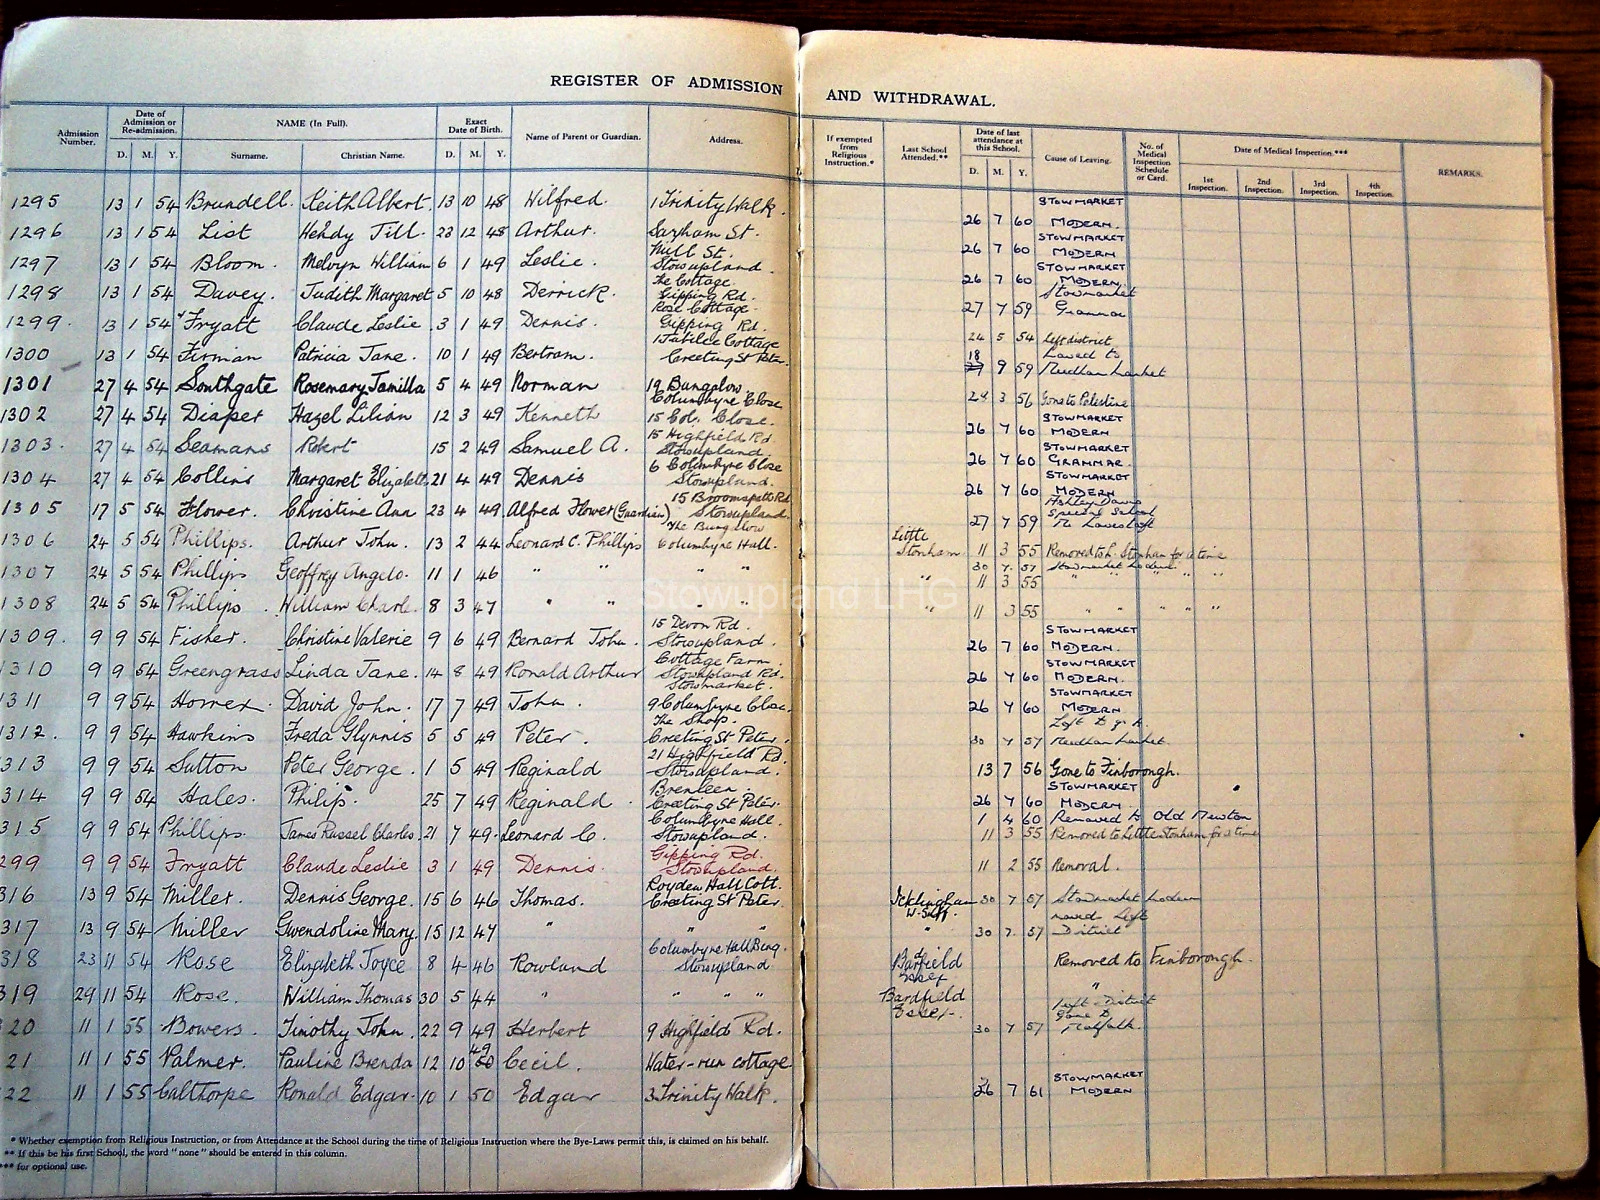 REGISTER OF ADMISSION AND WITHDRAWAL.
Admission Number. Date of Admission or Re-admission. D. M. Y. NAME (In Full). Surname. Christian Name. Exact Date of Birth. D. M. Y. Name of Parent or Guardian. Address. If exempted from Religious Instruction.* Last School Attended.** Date of last attendance at this School. D. M. Y. Cause of Leaving. No. of Medical Inspection Schedule or Card. Date of Medical Inspection.*** 1st Inspection. 2nd Inspection. 3rd Inspection. 4th Inspection. REMARKS.
1295 13 1 54 Brundell. Keith Albert. 13 10 48 Wilfred. 1 Trinity Walk. 26 7 60 STOWMARKET MODERN.
1296 13 1 54 List Hendy Jill. 23 12 48 Arthur. Saxham St. 26 7 60 STOWMARKET MODERN.
1297 13 1 54 Bloom. Melvyn William 6 1 49 Leslie. Mill St. Stowupland. 26 7 60 STOWMARKET MODERN.
1298 13 1 54 Davey. Judith Margaret 5 10 48 Derrick. The Cottage. Gipping Rd. 27 7 59 Stowmarket Grammar
1299. 13 1 54 Fryatt Claude Leslie. 3 1 49 Dennis. Rose Cottage. Gipping Rd. 24 5 54 Left district
1300 13 1 54 Firman Patricia Jane. 10 1 49 Bertram. 1 Jubilee Cottage Creeting St Peter. 18 9 59 Moved to Needham Market
1301 27 4 54 Southgate Rosemary Jamilla 5 4 49 Norman 19 Bungalow Columbyne Close 28 3 56 Gone to Palestine
1302 27 4 54 Diaper Hazel Lilian 12 3 49 Kenneth 15 Col. Close. 26 7 60 STOWMARKET MODERN
1303. 27 4 54 Seamans Robert 15 2 49 Samuel A. 15 Highfield Rd. Stowupland. 26 7 60 STOWMARKET GRAMMAR.
1304 27 4 54 Collins Margaret Elizabeth 21 4 49 Dennis 6 Columbyne Close Stowupland. 26 7 60 STOWMARKET MODERN
1305 17 5 54 Flower. Christine Ann 23 4 49 Alfred Flower (Guardian) 15 Broomspath Rd Stowupland. 27 7 59 Ashley Downs Special School Lowestoft
1306 24 5 54 Phillips. Arthur John. 13 2 44 Leonard C. Phillips The Bungalow Columbyne Hall. Little Stonham 11 3 55 Removed to L. Stonham for a time
30 7 57 Stowmarket Modern
1307 24 5 54 Phillips Geoffrey Angelo. 11 1 46 " " " " " 11 3 55 " " " " "
1308 24 5 54 Phillips William Charle. 8 3 47 " " " " " 11 3 55 " " " "
1309. 9 9 54 Fisher. Christine Valerie 9 6 49 Bernard John. 15 Devon Rd. Stowupland. 26 7 60 STOWMARKET MODERN.
1310 9 9 54 Greengrass Linda Jane. 14 8 49 Ronald Arthur Cottage Farm Stowupland Rd. Stowmarket. 26 7 60 STOWMARKET MODERN.
1311 9 9 54 Horrex. David John. 17 7 49 John. 9 Columbyne Close. 26 7 60 STOWMARKET MODERN
1312. 9 9 54 Hawkins Freda Glynnis 5 5 49 Peter. The Shop. Creeting St Peter. 30 7 57 Left to go to Needham Market.
313 9 9 54 Sutton Peter George. 1 5 49 Reginald 21 Highfield Rd. Stowupland. 13 7 56 Gone to Finborough.
314 9 9 54 Hales. Philip. 25 7 49 Reginald. Brenleen. Creeting St Peter. 26 7 60 STOWMARKET MODERN
1 4 60 Removed to Old Newton
315 9 9 54 Phillips. James Russel Charles. 21 7 49. Leonard C. Columbyne Hall. Stowupland. 11 3 55 Removed to Little Stonham for a time
299 9 9 54 Fryatt Claude Leslie 3 1 49 Dennis. Gipping Rd. Stowupland. 11 2 55 Removal.
316 13 9 54 Miller. Dennis George. 15 6 46 Thomas. Roydon Hall Cott. Creeting St Peter. Icklingham W. Suff. 30 7 57 Stowmarket Modern
317 13 9 54 Miller Gwendoline Mary. 15 12 47 " " " " 30 7 57 moved Left District
318 23 11 54 Rose Elizabeth Joyce 8 4 46 Rowland Columbyne Hall Bung. Stowupland. Bardfield Essex Removed to Finborough.
319 29 11 54 Rose. William Thomas 30 5 44 " " " " Bardfield Essex. "
20 11 1 55 Bowers. Timothy John. 22 9 49 Herbert 9 Highfield Rd. 30 7 57 Left District Gone to
21 11 1 55 Palmer. Pauline Brenda 12 10 49 Cecil. Water-run cottage
22 11 1 55 Calthorpe Ronald Edgar. 10 1 50 Edgar 3 Trinity Walk. 26 7 61 STOWMARKET MODERN
* Whether exemption from Religious Instruction, or from Attendance at the School during the time of Religious Instruction where the Bye-Laws permit this, is claimed on his behalf.
** If this be his first School, the word "none" should be entered in this column.
*** for optional use.
Stowupland LHG